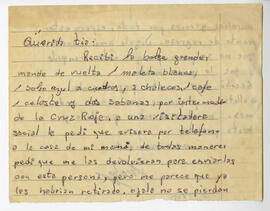 Querida tía:
Recibí la bolsa grande,
mande de vuelta 1 maleta blanca,
1 polo azul a cuadros, 2 chalecos, 1 café
1 celeste y dos sabanas, por intermedio
de la Cruz-Roja, a una visitadora
social le pedí que avisara por telefono
a la casa de mi mamá, de todas maneras
pedí que me las devolvieran para enviarlas
con esta persona, pero me parece que ya
las habrian retirado, ojala no se pierdan